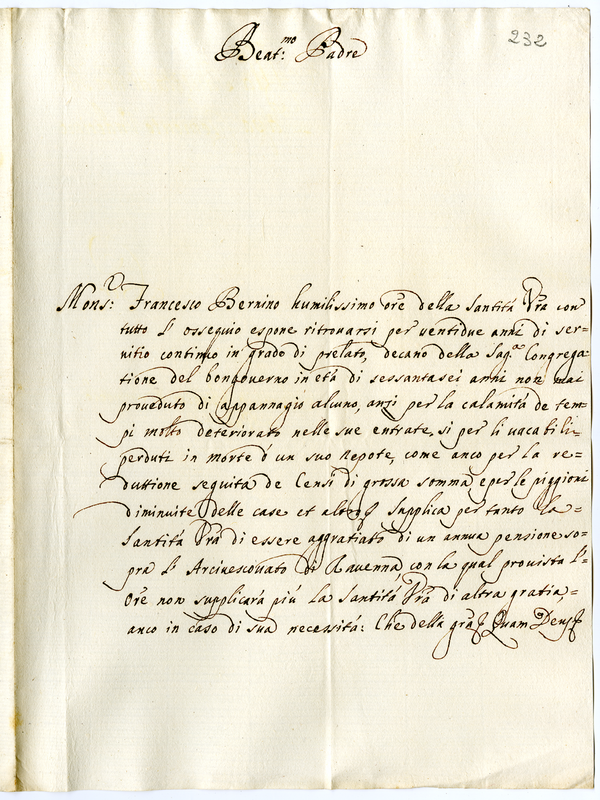 232
Beat:mo Padre
Mons: Francesco Bernino humilissimo Ore della Santità Vra con
tutto l'osseguio espone ritrouarsi per uentidue anni di ser=
uitio continuo in grado di prelato, decano della Sag.a Congrega=
tione del bongouerno in età di sessantasei anni non mai
proueduto di appannagio alcuno, anzi per la calamità de tem=
pi molto deteriorato nelle sue entrate, si per li uacabili
perduti in morte d'un suo Nepote, come anco per la re=
duttione seguita de Censi di grossa somma e per le piggioni
diminuite delle case et altro Supplica per tanto la =
Santità Vra di essere aggratiato di un annua pensione so=
pra l'Arciuescouato di Rauenna, con la qual prouista l'=
Ore non supplicarà più la Santità Vra di altra gratia, =
anco in caso di sua necessità: Che della gra Quam Deus